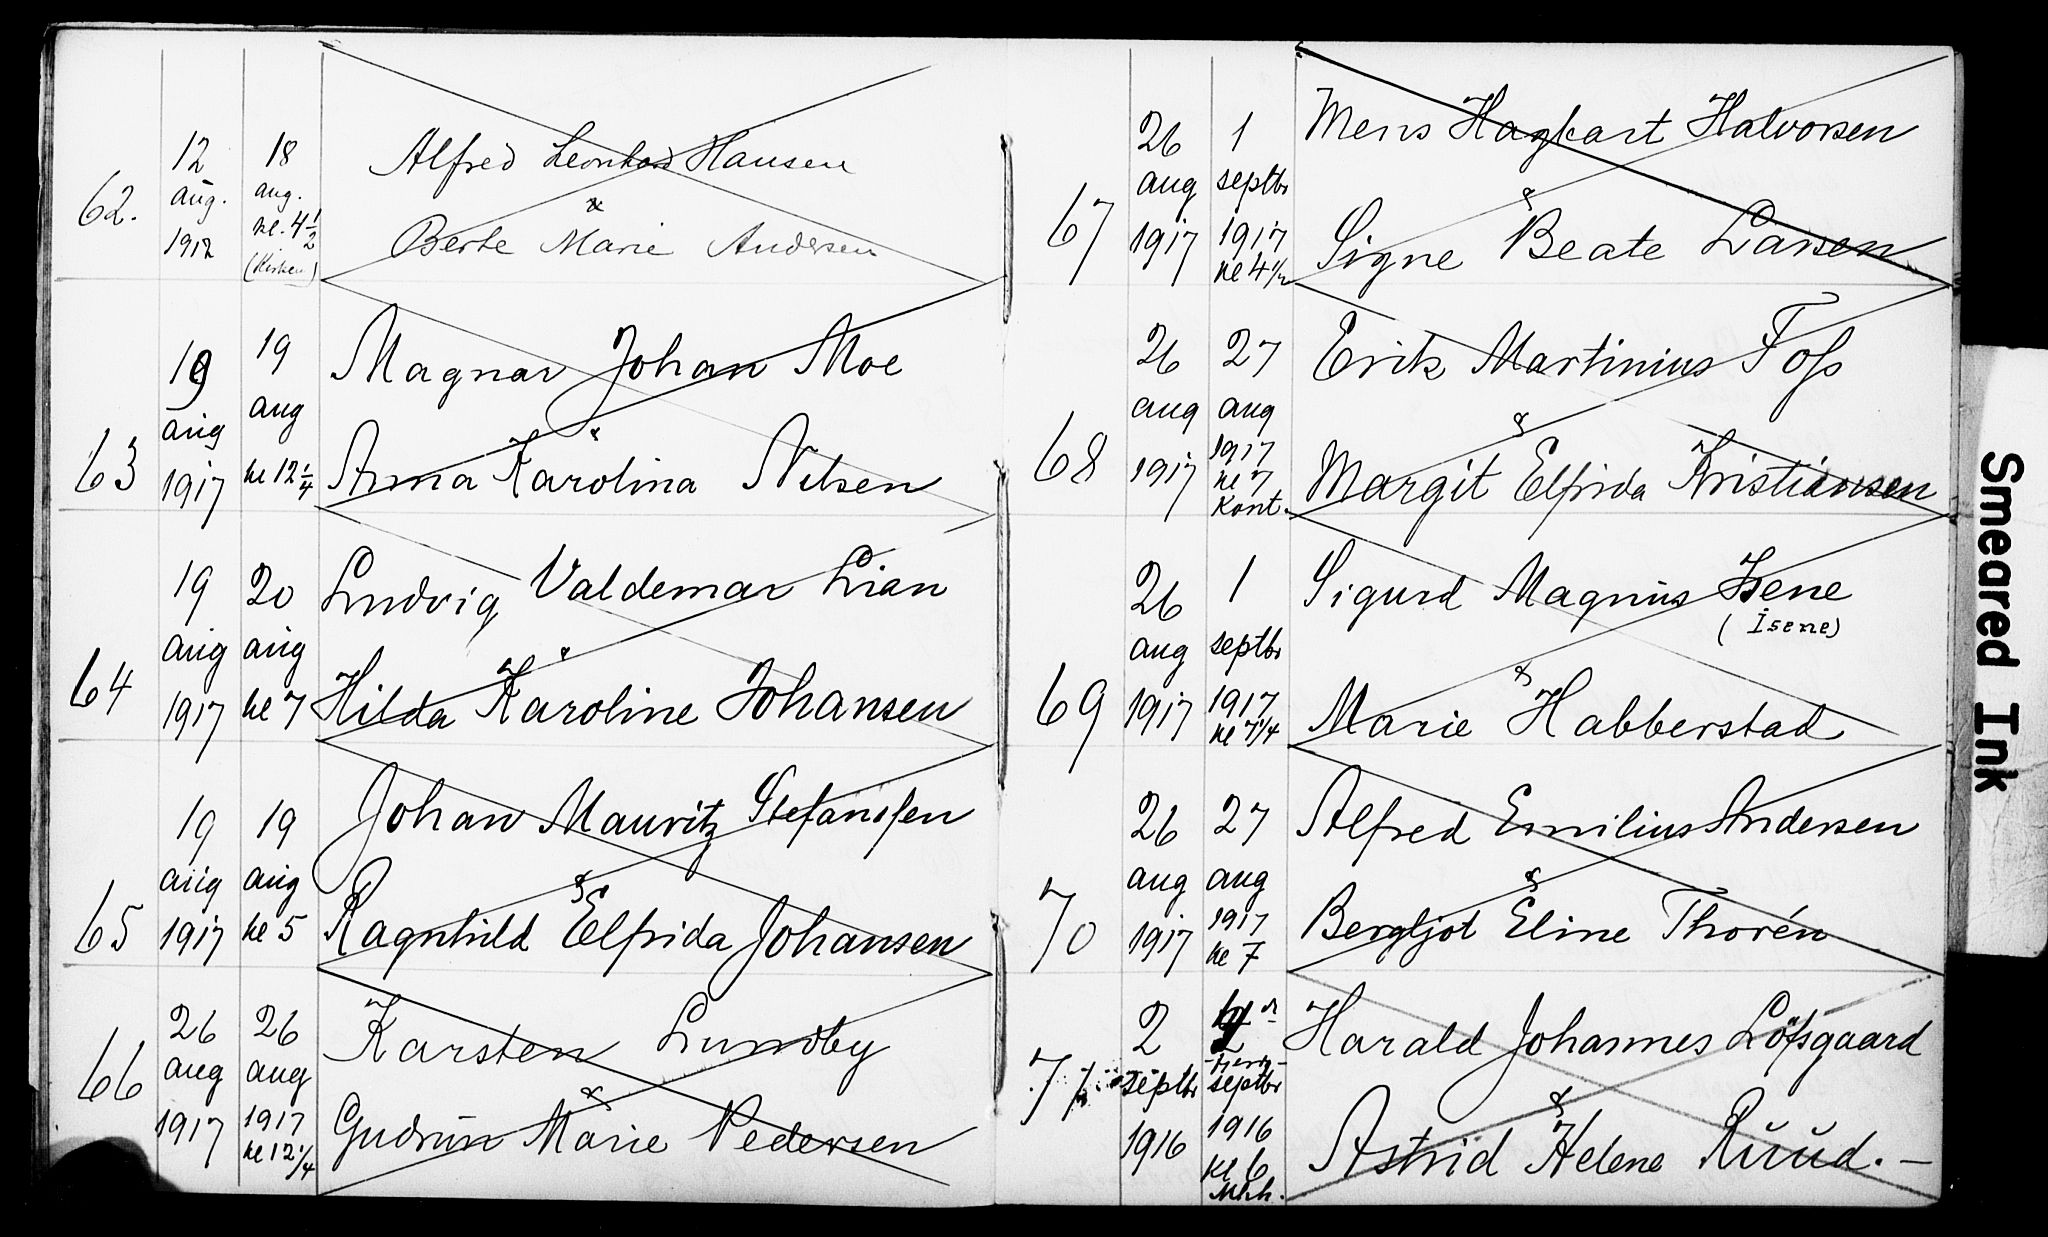 62.
12 aug. 1912
18 aug. kl. 4 1/2 (Kirken)
Alfred Leonhard Hansen
&
Berte Marie Andersen
63
19 aug 1917
19 aug kl 12 1/4
Magnar Johan Moe
&
Anna Karolina Nilsen
64
19 aug 1917
20 aug kl 7
Ludvig Valdemar Lian
&
Hilda Karoline Johansen
65
19 aug 1917
19 aug kl 5
Johan Mauritz Stefanssen
&
Ragnhild Elfrida Johansen
66
26 aug 1917
26 aug 1917 kl 12 1/4
Karsten Lundby
&
Gudrun Marie Pedersen
67
26 aug 1917
1 septbr 1917 kl 4 1/2
Mens Hagbart Halvorsen
&
Signe Beate Larsen
68
26 aug 1917
27 aug 1917 kl 7 Kont.
Erik Martinius Foss
&
Margit Elfrida Kristiansen
69
26 aug 1917
1 septbr 1917 kl 7 1/4
Sigurd Magnus Isene
(Isene)
&
Marie Habberstad
70
26 aug 1917
27 aug 1917 kl 7
Alfred Emilius Andersen
&
Bergljot Eline Thorén
71
2 septbr 1916
septbr 1916 kl 6
Harald Johannes Löfsgaard
&
Astrid Helene Ruud. —
Smeared Ink